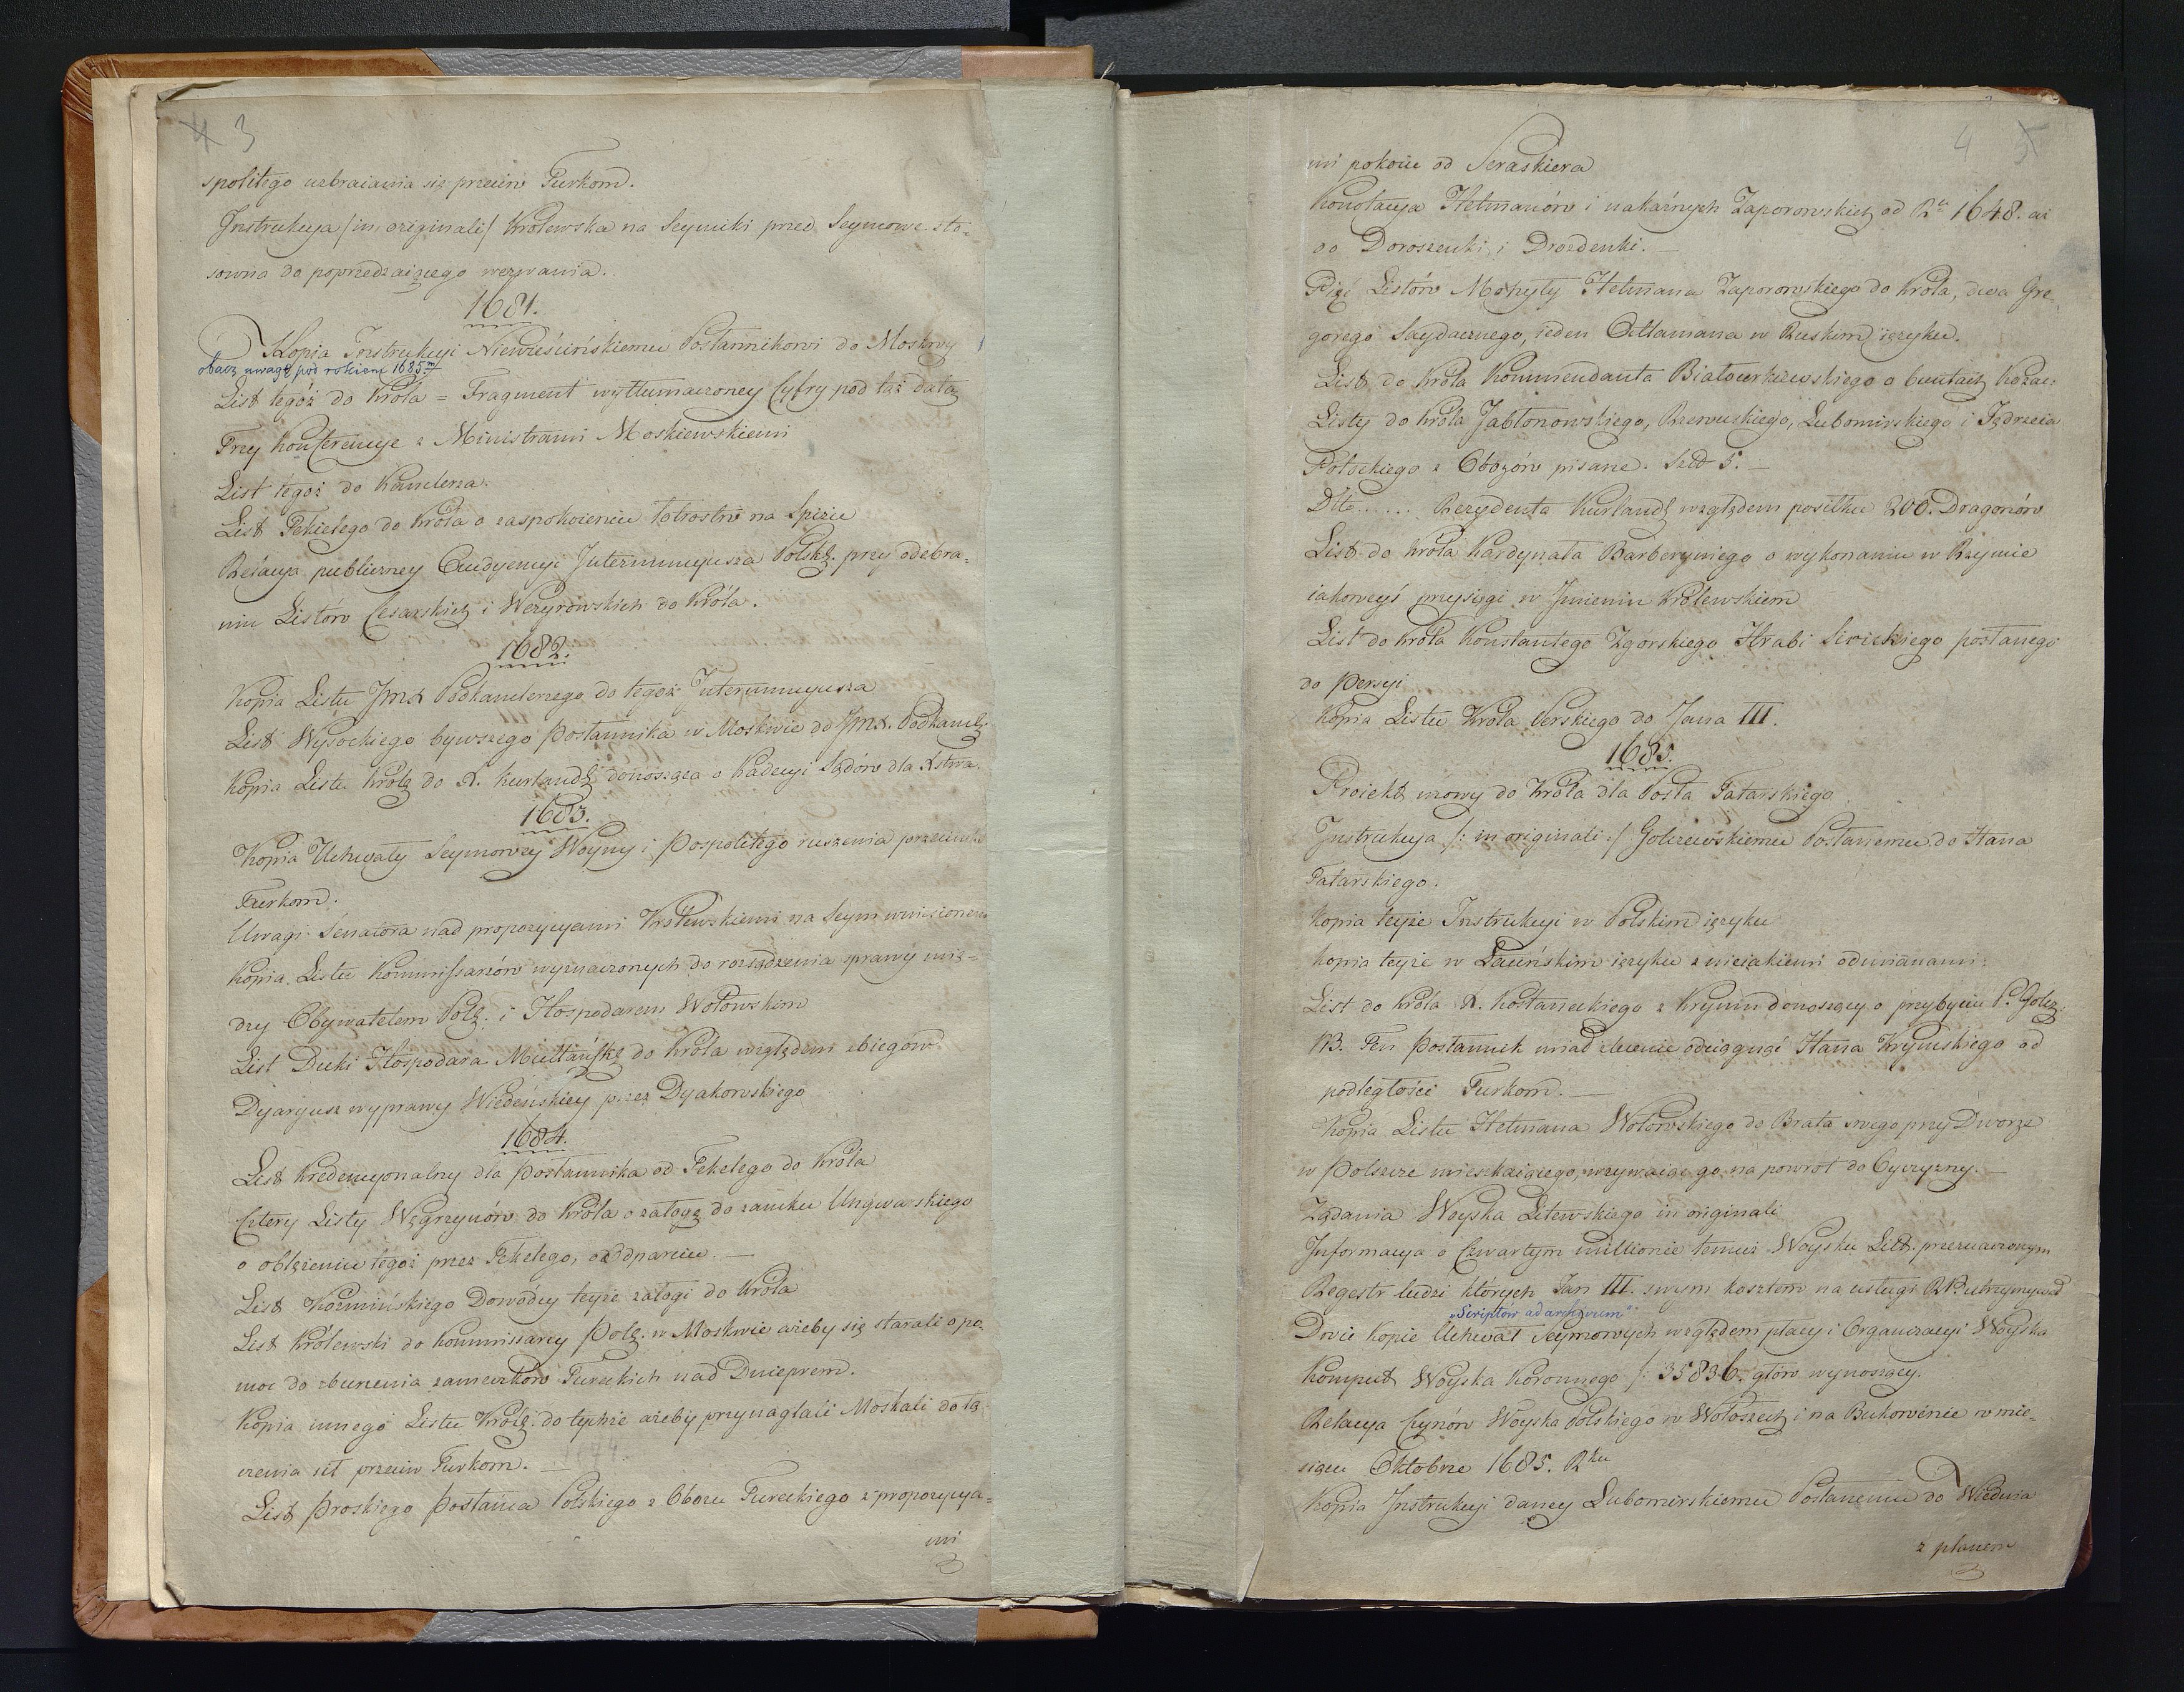 4 3
spolitego uzbraiania się przeciw Turkom.
Instrukcya /in originali/ Królewska na Seymiki przed Seymowe sto-
sowna do poprzedzaiącego wezwania.
1681.
Kopia Instrukcyi Niewieścińskiemu Posłannikowi do Moskwy
obacz uwagę pod rokiem 1685m
List tegoż do Króla = Fragment wytłumaczoney Cyfry pod taż datą
Trzy Konferencye z Ministrami Moskiewskiemi
List tegoż do Kanclerza.
List Tekielego do Króla o zaspokoieniu łotrostw na Spiżu
Relacya publiczney Audyencyi Internuncyusza Polskg. przy odebra-
niu Listów Cesarskich i Wezyrowskich do Króla.
1682.
Kopia Listu Jmx Podkanclerzego do tegoż Internuncyusza
List Wysockiego bywszego Posłannika w Moskwie do Jmx. Podkancl:
Kopia Listu Królg do X. Kurlandz donosząca o Kadecyi Sądów dla Xstwa.
1683.
Kopia Uchwały Seymowey Woyny i Pospolitego ruszenia przeciwko
Turkom.
Uwagi Senatora nad propozycyami Królewskiemi na Seym wniesionemi
Kopia Listu Kommissarzów wyznaczonych do rozsądzenia sprawy mię-
dzy Obywatelem Polg. i Hospodarem Wołowskim
List Duki Hospodara Multańskg do Króla względem zbiegów
Dyaryusz wyprawy Wiedeńskiey przez Dyakowskiego
1684.
List Kredencyonalny dla Posłannika od Tekelego do Króla
Cztery Listy Węgrzynów do Króla o załogę do zamku Ungwarskiego
o oblężeniu tegoż przez Tekelego, odparciu. —
List Koźmińskiego Dowódcy teyże załogi do Króla
List Królewski do Kommissarzy Polg. w Moskwie ażeby się starali o po-
moc do zburzenia zameczków Tureckich nad Dnieprem.
Kopia innego Listu Królg. do tychże ażeby przynaglali Moskali do łą-
czenia sił przeciw Turkom. —
List Proskiego Posłańca Polskiego z Obozu Tureckiego z propozycya-
mi
4 5
mi pokoiu od Seraskiera
Konotacya Hetmanów i nakaźnych Zaporowskich od Ru 1648. aż
do Doroszenki i Drozdenki. —
Pięć Listów Mohyły Hetmana Zaporowskiego do Króla, dwa Gre-
gorego Saydacznego, ieden Attamana w Ruskim ięzyku.
List do Króla Kommendanta Białocerkiewskiego o buntach Kozac:
Listy do Króla Jabłonowskiego, Rzewuskiego, Lubomirskiego i Jędrzeia
Potockiego z Obozów pisane. Sztd 5. —
Dtto...... Rezydenta Kurlandz względem posiłku 200. Dragonów
List do Króla Kardynała Barberyniego o wykonaniu w Rzymie
iakoweyś przysięgi w Jmieniu Królewskiem
List do Króla Konstantego Zgorskiego Hrabi Siwickiego posłanego
do Persyi
Kopia Listu Króla Perskiego do Jana III.
1685.
Proiekt mowy do Króla dla Posła Tatarskiego
Instrukcya /: in originali :/ Golczewskiemu Posłanemu do Hana
Tatarskiego.
Kopia teyże Instrukcyi w Polskim ięzyku
Kopia teyże w Łacińskim ięzyku z nieiakiemi odmianami.
List do Króla X. Kostaneckiego z Krymu donoszący o przybyciu P. Golcz.
NB. Ten Posłannik miał zlecenie odciągnąć Hana Krymskiego od
podległości Turkom. —
Kopia Listu Hetmana Wołowskiego do Brata swego przy Dworze
w Polszcze mieszkaiącego, wzywaiąc go na powrót do Oyczyzny. —
Żądania Woyska Litewskiego in originali
Informacya o Czwartym millionie temuż Woysku Litt. przeznaczonym
Regestr ludzi których Jan III. swym kosztem na usługi RP. utrzymywał
„Scriptów ad archivum"
Dwie Kopie Uchwał Seymowych względem płacy i Organizacyi Woyska
Komput Woyska Koronnego /: 35836. głów wynoszący.
Relacya Czynów Woyska Polskiego w Wołoszech i na Bukowinie w mie-
siącu Oktobrze 1685. Rku
Kopia Instrukcyi daney Lubomirskiemu Posłanemu do Wiednia
z planem